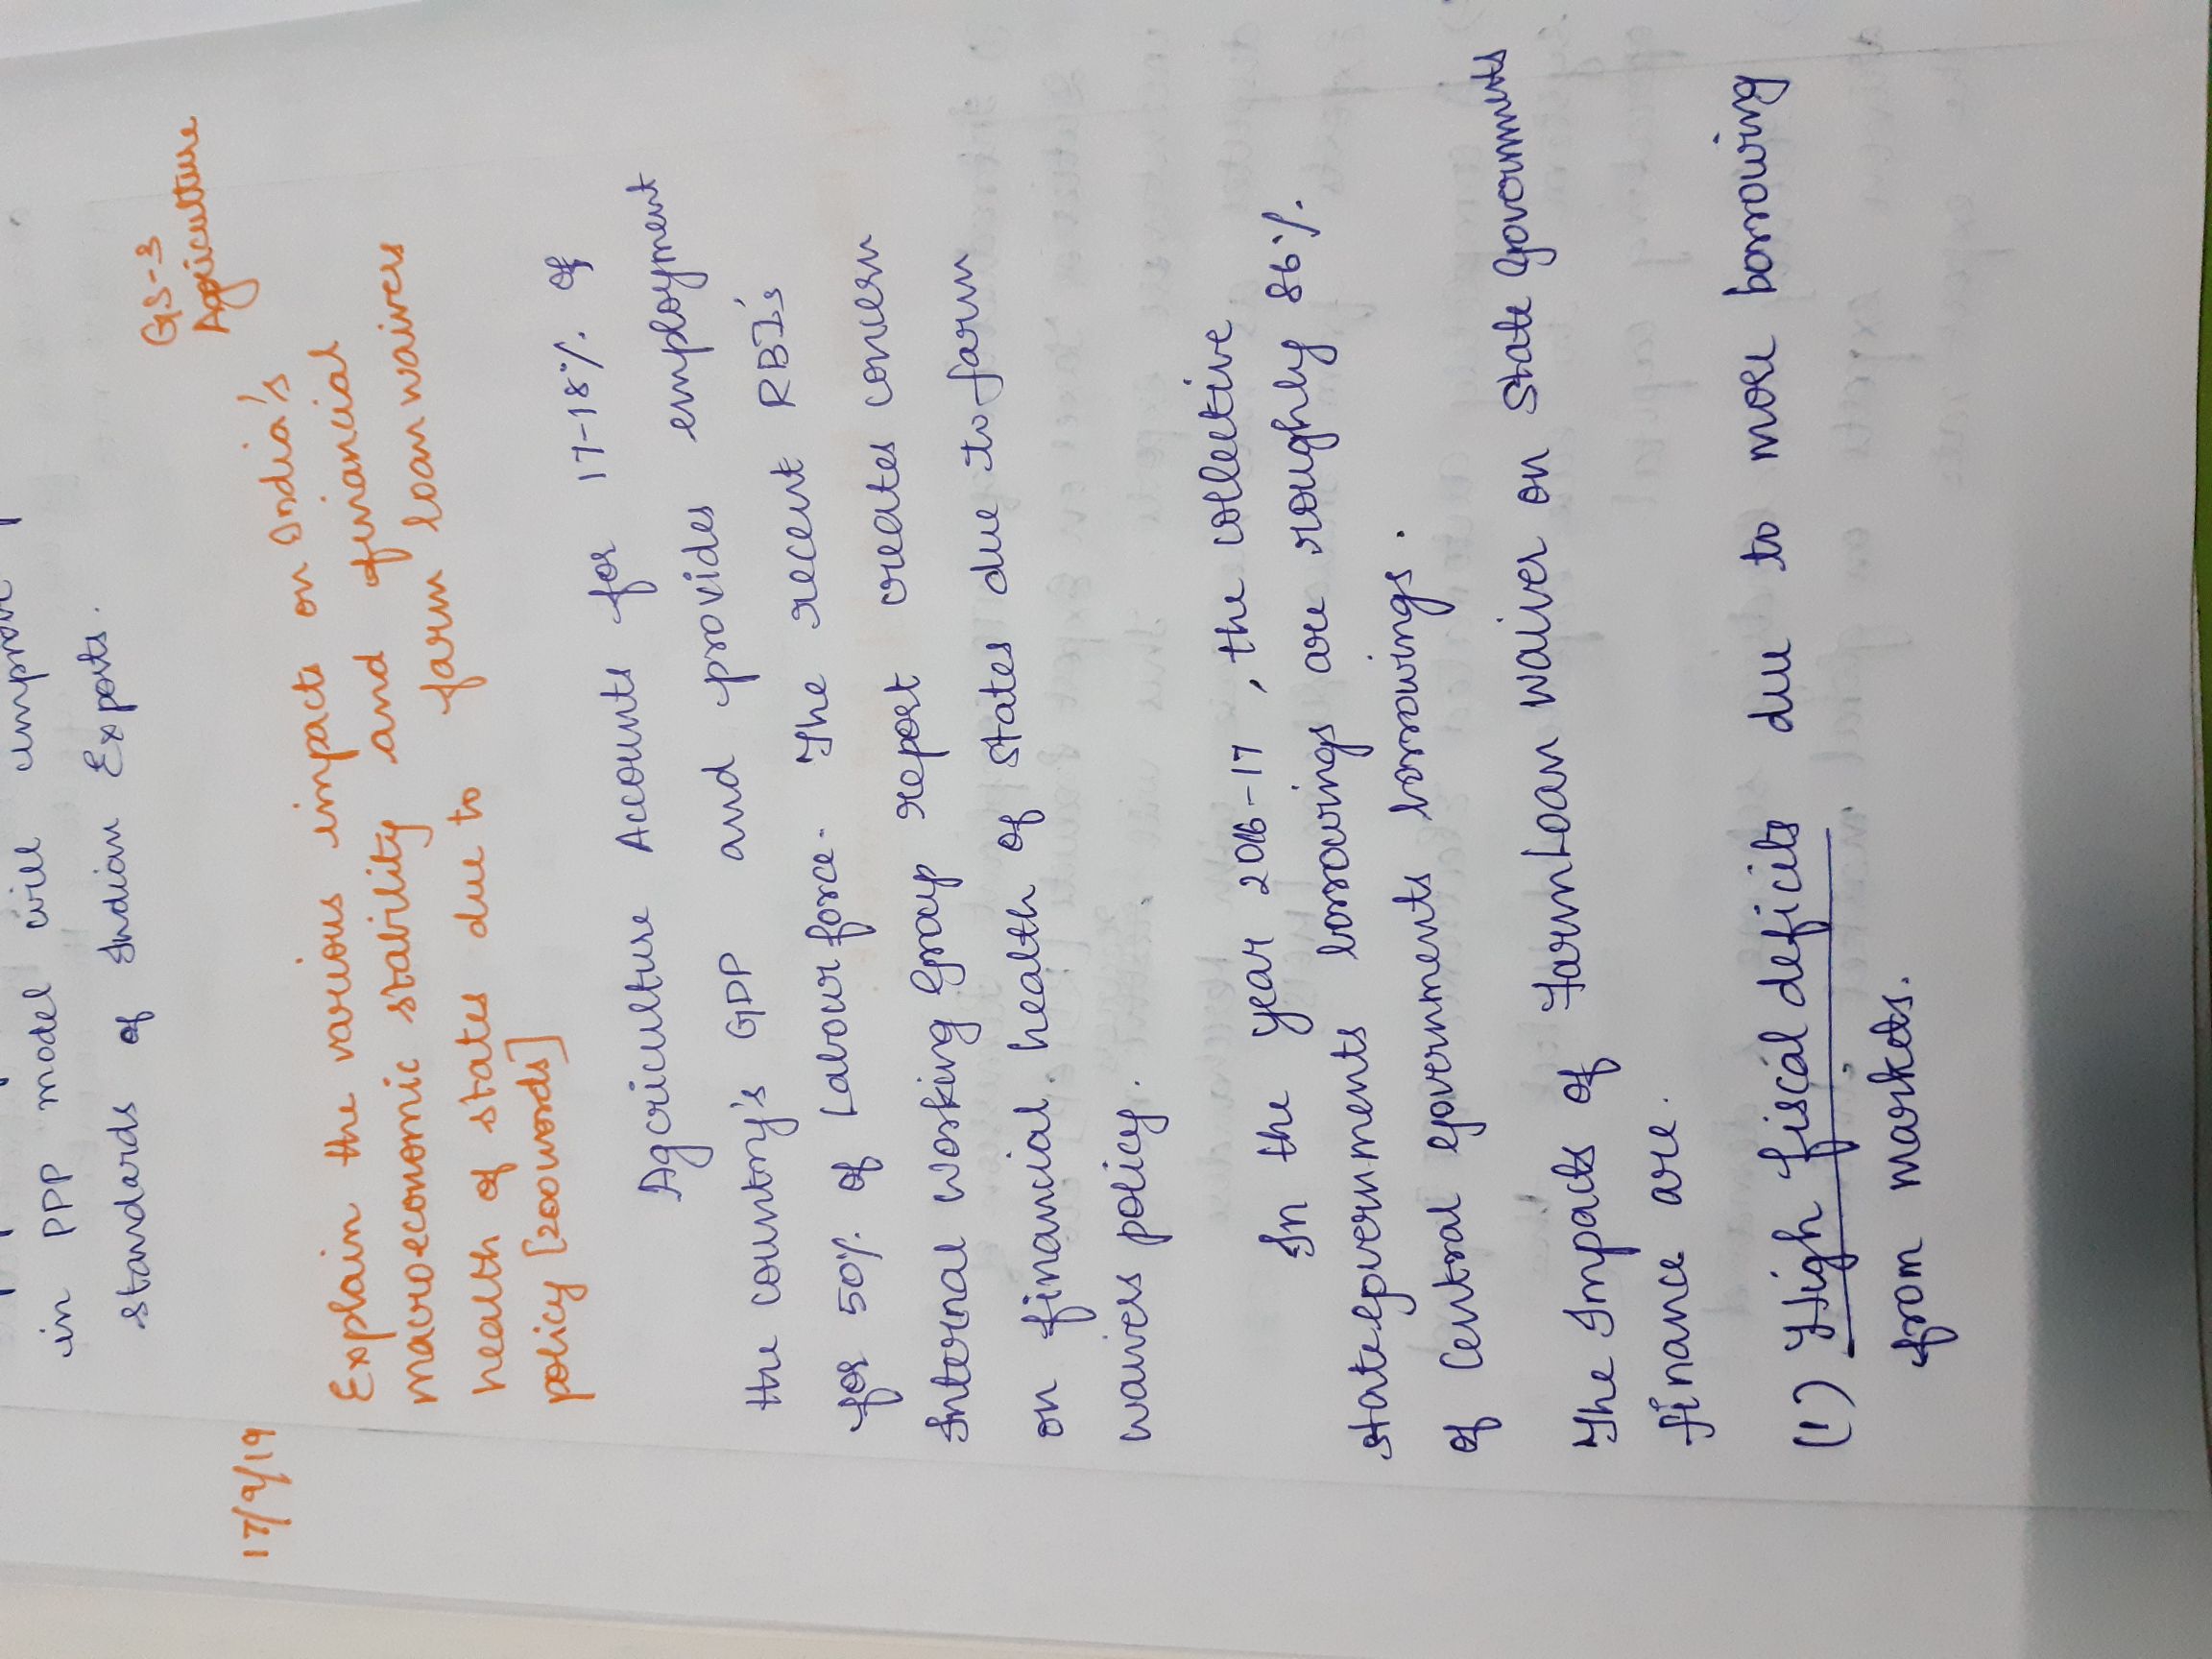 in PPP model will improve
standards of Indian Exports.
GS-3
Agriculture
17/9/19
Explain the various impact on India's
macroeconomic stability and financial
health of states due to farm loan waivers
policy [200 words]
Agriculture Accounts for 17-18% of
the country's GDP and provides employment
for 50% of Labour force. The recent RBI's
Internal working Group report creates concern
on financial health of states due to farm
waivers policy.
In the year 2016-17, the collective
state Governments borrowings are roughly 86%
of Central Governments borrowings.
The Impacts of Farm Loan waiver on State Governments
finance are.
(1) High fiscal deficits due to more borrowing
from markets.